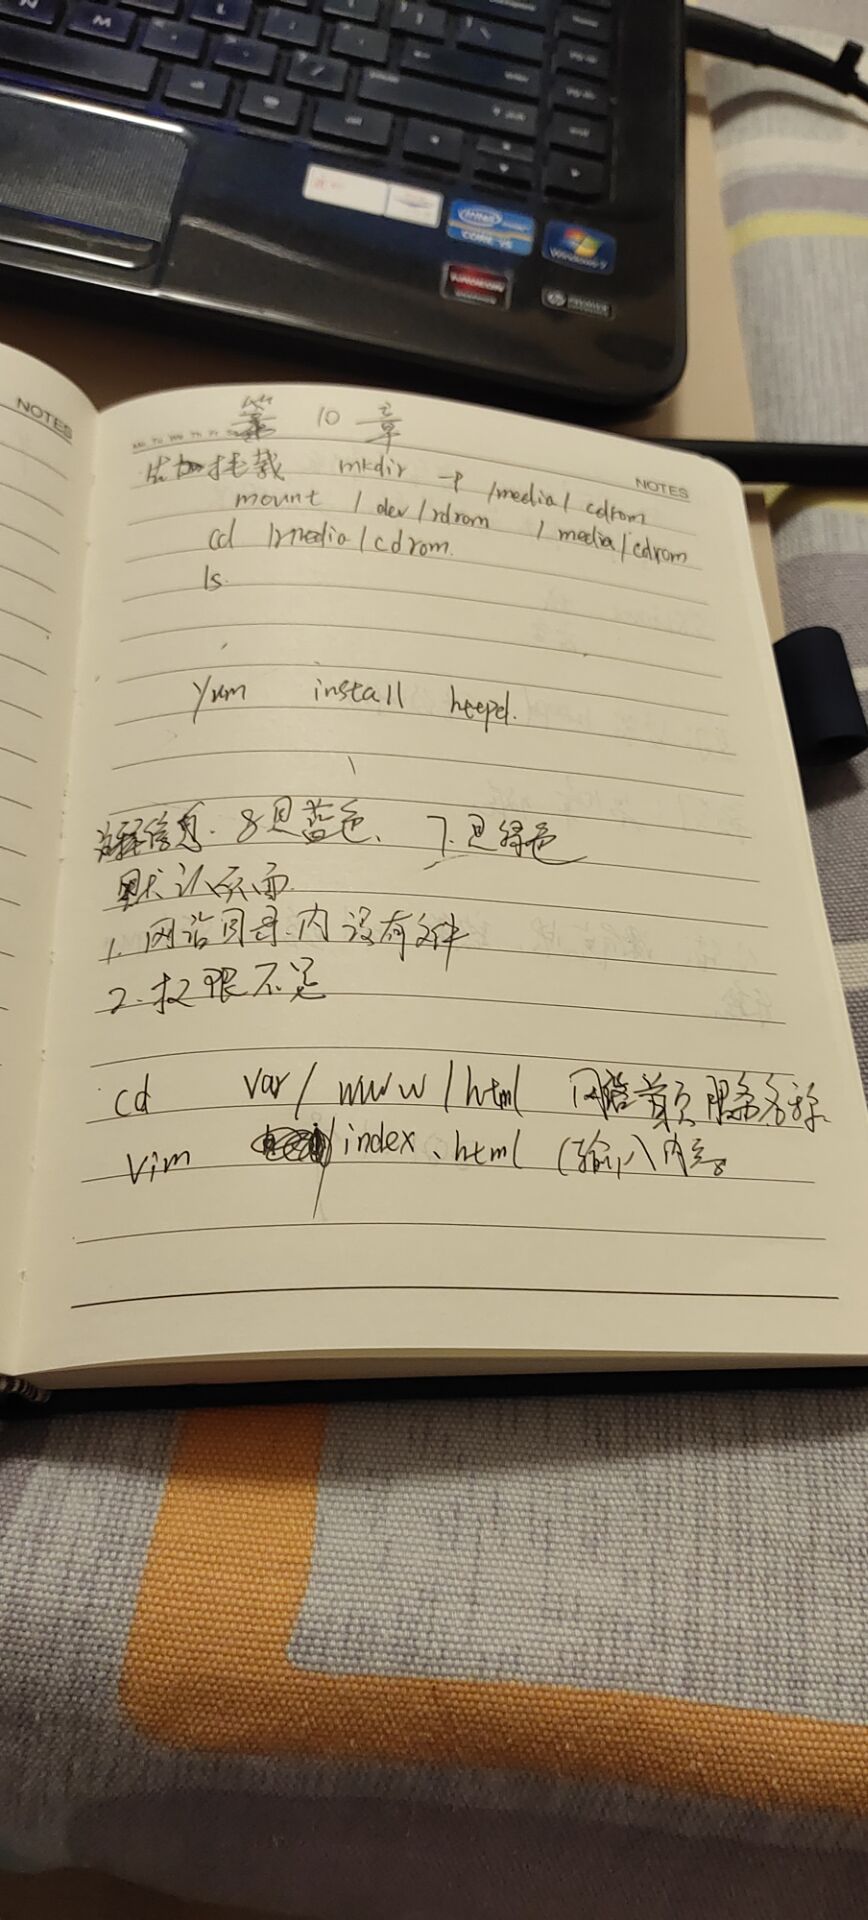 NOTES
第 10 章
NOTES
挂载 mkdir -p /media/cdrom
mount /dev/cdrom /media/cdrom
cd /media/cdrom
ls.
yum install httpd.
注释信息. 8是蓝色、 7.是绿色
默认页面
1. 网站目录.内 没有文件
2. 权限不足
cd var/www/html 网站首页 服务名称
vim /index.html (输入内容